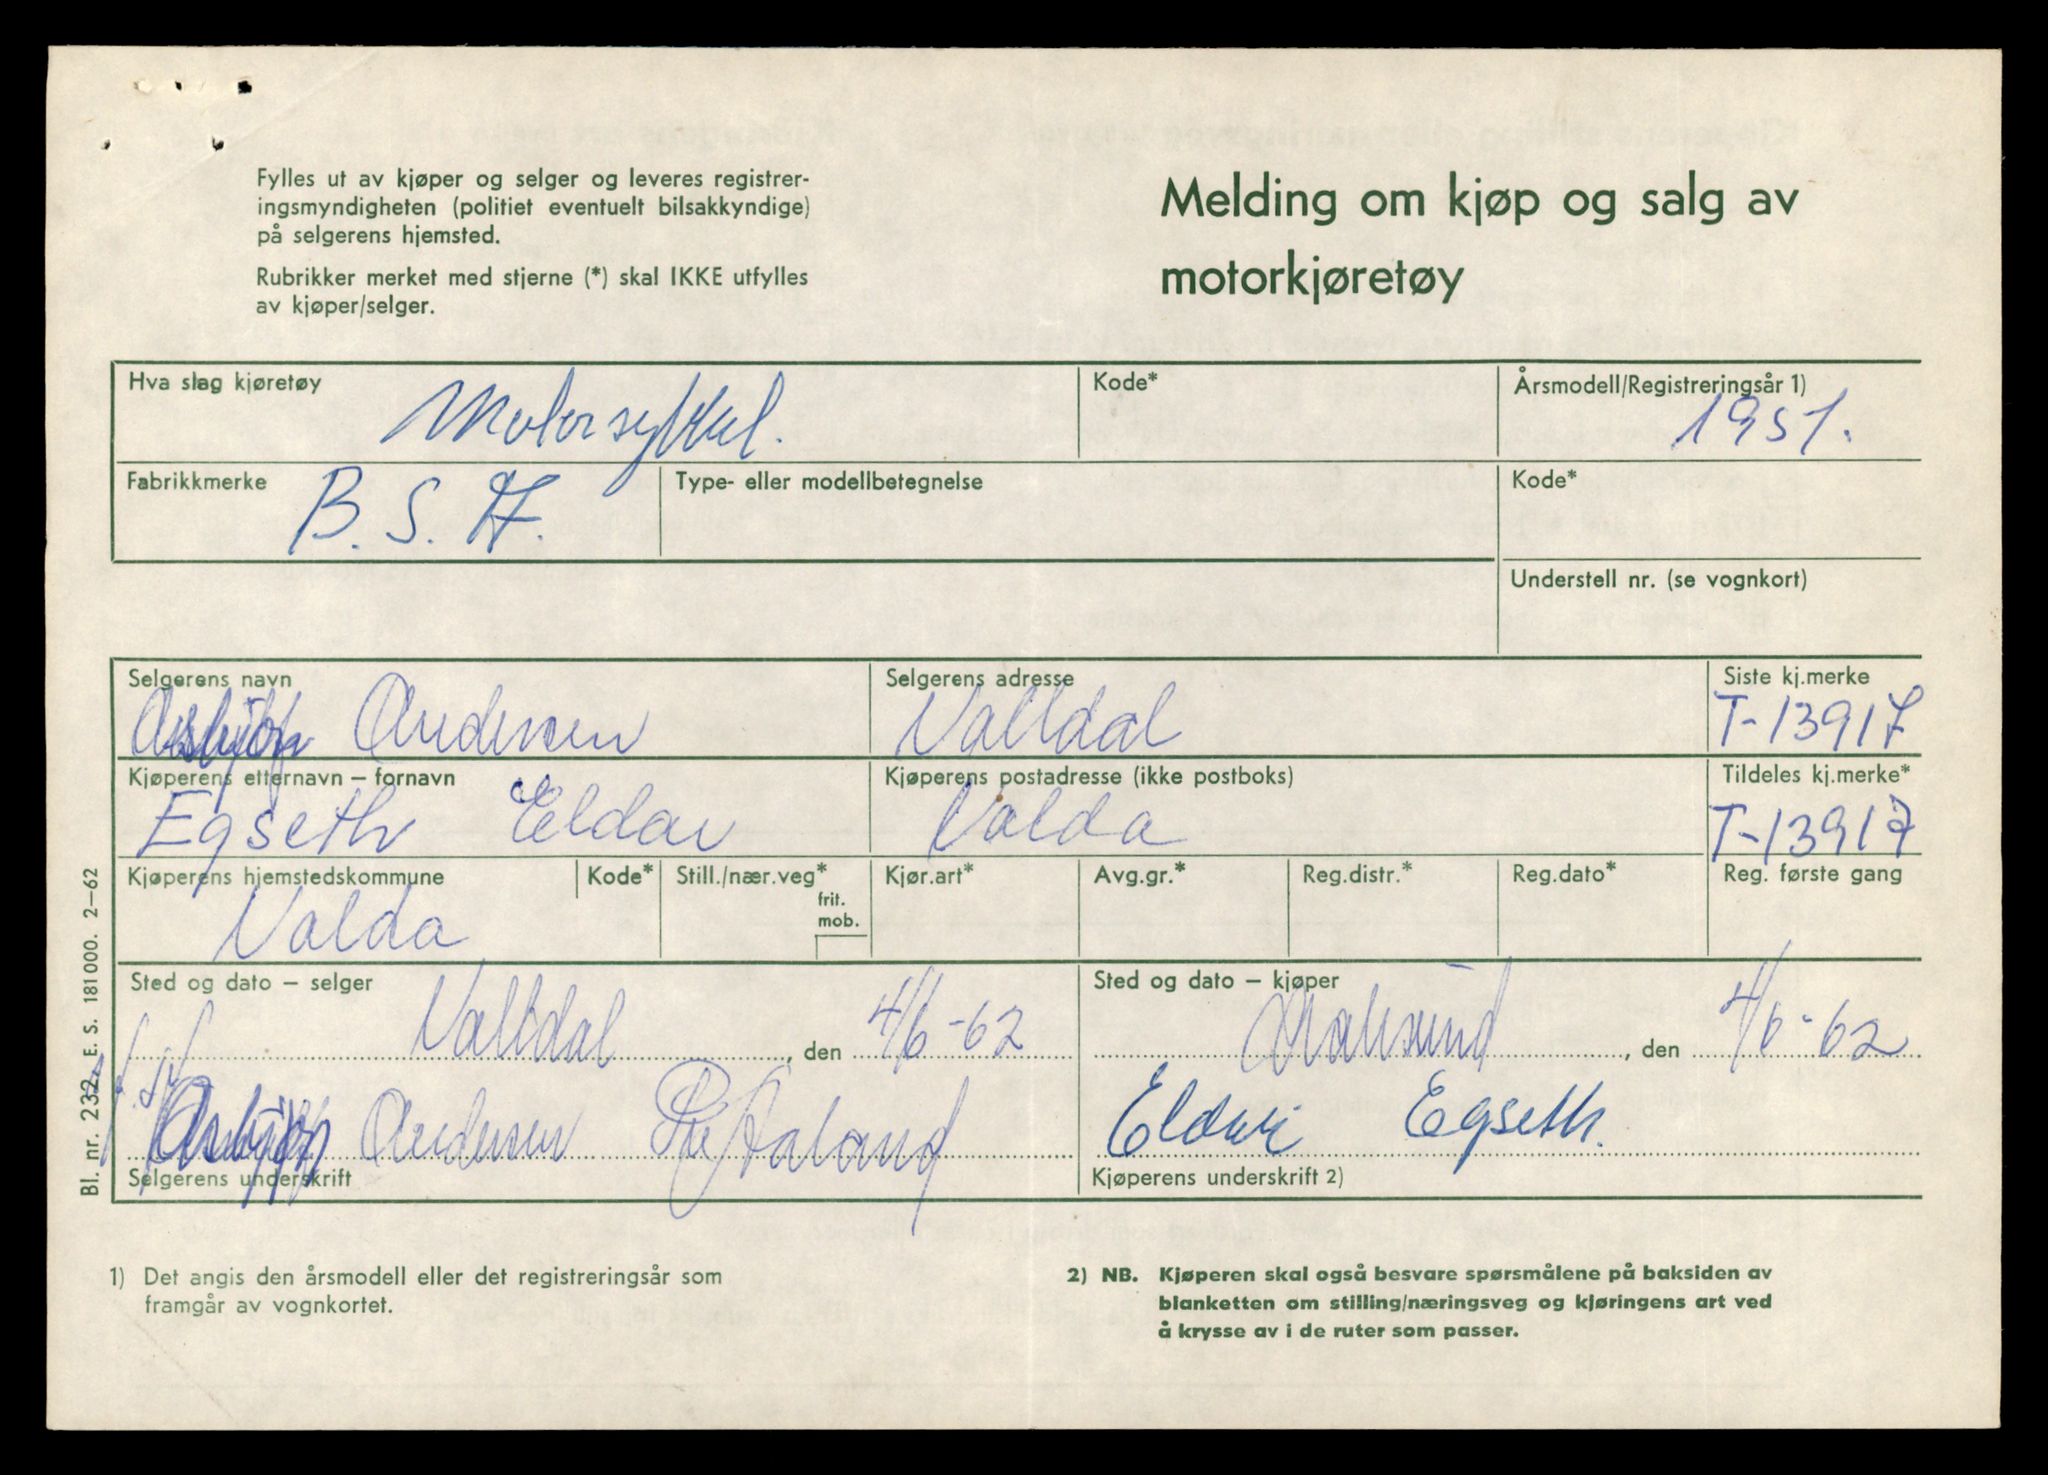 Fylles ut av kjøper og selger og leveres registrer-
ingsmyndigheten (politiet eventuelt bilsakkyndige)
på selgerens hjemsted.
Rubrikker merket med stjerne (*) skal IKKE utfylles
av kjøper/selger.
Melding om kjøp og salg av
motorkjøretøy
Hva slag kjøretøy
Motorsykkel.
Kode*
Årsmodell/Registreringsår 1)
1951.
Fabrikkmerke
B. S. A.
Type- eller modellbetegnelse
Kode*
Understell nr. (se vognkort)
Selgerens navn
Asbjørn Andersen
Selgerens adresse
Valldal
Siste kj.merke
T-13917
Kjøperens etternavn – fornavn
Egseth Eldar
Kjøperens postadresse (ikke postboks)
Volda
Tildeles kj.merke*
T-13917
Kjøperens hjemstedskommune
Volda
Kode*
Still./nær.veg*
frit.
mob.
Kjør.art*
Avg.gr.*
Reg.distr.*
Reg.dato*
Reg. første gang
Sted og dato – selger
Valldal, den 4/6-62
Asbjørn Andersen
Selgerens underskrift
Sted og dato – kjøper
, den 4/6-62
Eldar Egseth.
Kjøperens underskrift 2)
Bl. nr. 232. E. S. 181 000. 2–62
1) Det angis den årsmodell eller det registreringsår som
framgår av vognkortet.
2) NB. Kjøperen skal også besvare spørsmålene på baksiden av
blanketten om stilling/næringsveg og kjøringens art ved
å krysse av i de ruter som passer.